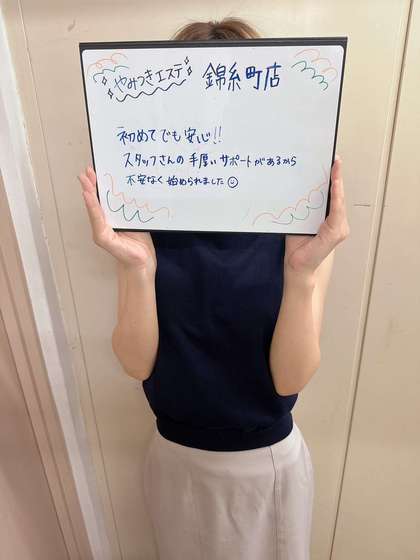 やみつきエステ 錦糸町店
初めてでも安心!!
スタッフさんの手厚いサポートがあるから
不安なく始められました☺